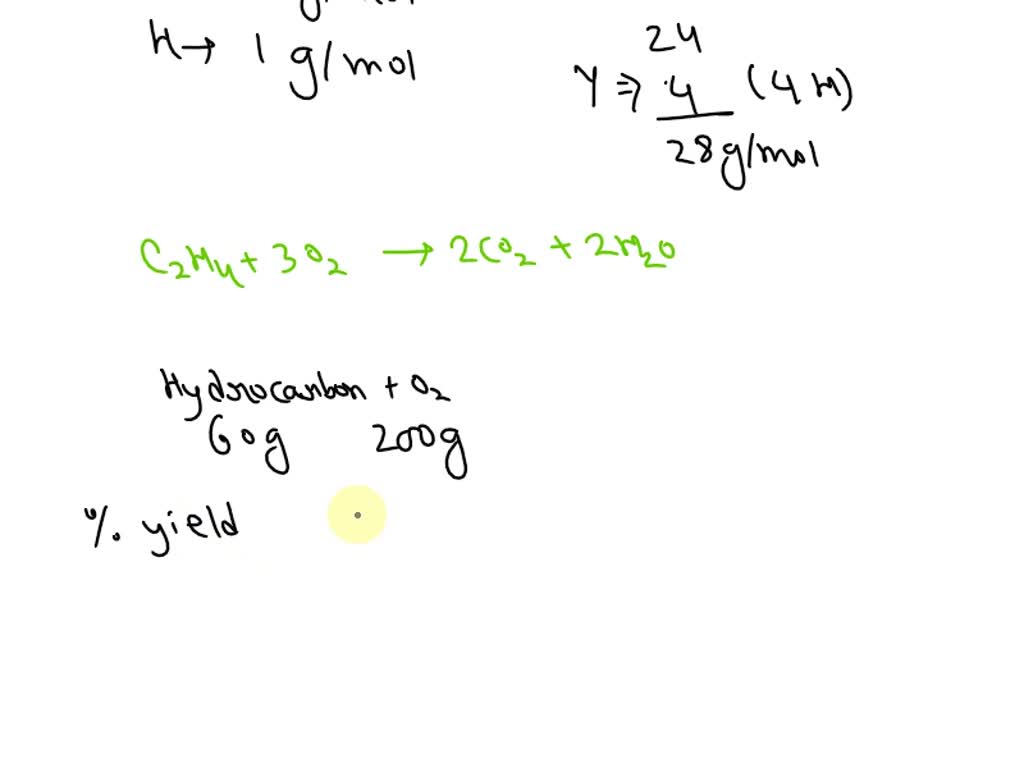 H → 1 g/mol
24
Y ⇒ 4 (4 H)
28 g/mol
C₂H₄ + 3O₂ → 2CO₂ + 2H₂O
Hydrocarbon + O₂
60g 200g
% yield